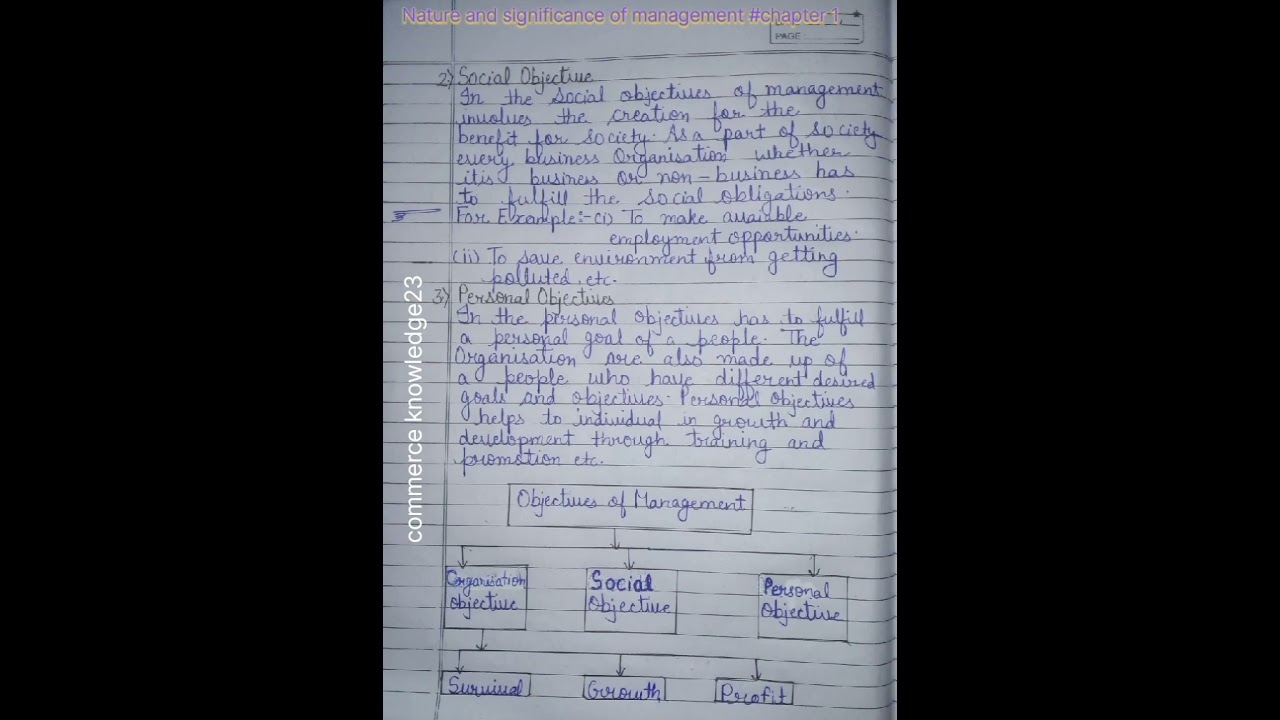 Nature and significance of management #chapter 1
PAGE
2) Social Objective
In the social objectives of management
involves the creation for the
benefit for society. As a part of society
every business Organisation whether
itis business or non-business has
to fulfill the social obligations.
For Example:- (i) To make avaiable
employment opportunities.
(ii) To save environment from getting
polluted, etc.
3) Personal Objectives
In the personal objectives has to fulfill
a personal goal of a people. The
Organisation are also made up of
a people who have different desired
goals and objectives. Personal objectives
helps to individual in growth and
development through training and
promotion etc.
Objectives of Management
Organisation
objective
Social
Objective
Personal
Objective
Survival
Growth
Profit
commerce knowledge23